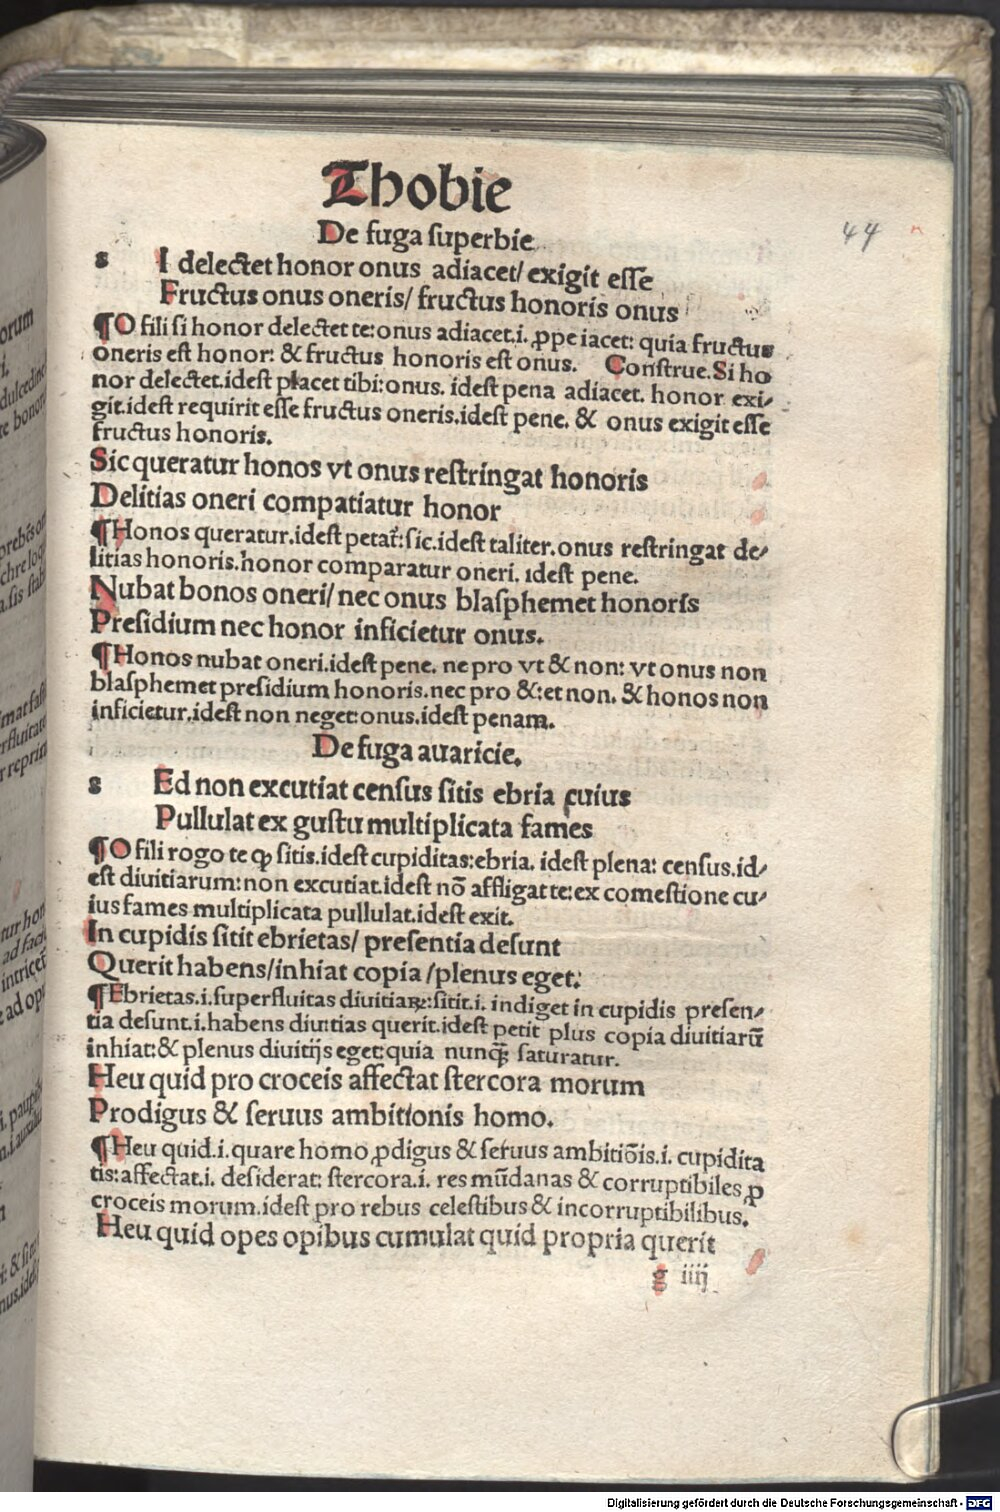 Thobie
44
De fuga superbie
s I delectet honor onus adiacet/ exigit esse
Fructus onus oneris/ fructus honoris onus
¶O fili si honor delectet te: onus adiacet.i. ꝓpe iacet: quia fructus
oneris est honor: & fructus honoris est onus. Construe. Si ho
nor delectet.idest placet tibi: onus. idest pena adiacet. honor exi/
git.idest requirit esse fructus oneris.idest pene. & onus exigit esse
fructus honoris.
Sic queratur honos vt onus restringat honoris
Delitias oneri compatiatur honor
¶Honos queratur.idest petat᷑: sic.idest taliter.onus restringat de/
litias honoris.honor comparatur oneri. idest pene.
Nubat bonos oneri/ nec onus blasphemet honoris
Presidium nec honor inficietur onus.
¶Honos nubat oneri.idest pene. ne pro vt & non: vt onus non
blasphemet presidium honoris.nec pro &: et non. & honos non
inficietur.idest non neget: onus.idest penam.
De fuga avaricie.
s Ed non excutiat census sitis ebria cuius
Pullulat ex gustu multiplicata fames
¶O fili rogo te ꝙ sitis.idest cupiditas: ebria. idest plena: census.id/
est diuitiarum: non excutiat.idest nō affligat te: ex comestione cu/
ius fames multiplicata pullulat.idest exit.
In cupidis sitit ebrietas/ presentia desunt
Querit habens/inhiat copia/plenus eget:
¶Ebrietas.i.superfluitas diuitiaꝝ: sitit.i. indiget in cupidis presen/
tia desunt.i.habens diuitias querit.idest petit plus copia diuitiarū
inhiat: & plenus diuitijs eget: quia nunꝙ̄ saturatur.
Heu quid pro croceis affectat stercora morum
Prodigus & seruus ambitionis homo.
¶Heu quid.i. quare homo ꝓdigus & seruus ambitiōis.i. cupidita
tis: affectat.i. desiderat: stercora.i. res mūdanas & corruptibiles ꝓ
croceis morum.idest pro rebus celestibus & incorruptibilibus.
Heu quid opes opibus cumulat quid propria querit
g iiij
orum
i.
dulcedine
te honor
chre loq
a.sis stab
tur hon
ad faci
intricet
e ad op
Digitalisierung gefördert durch die Deutsche Forschungsgemeinschaft - DFG